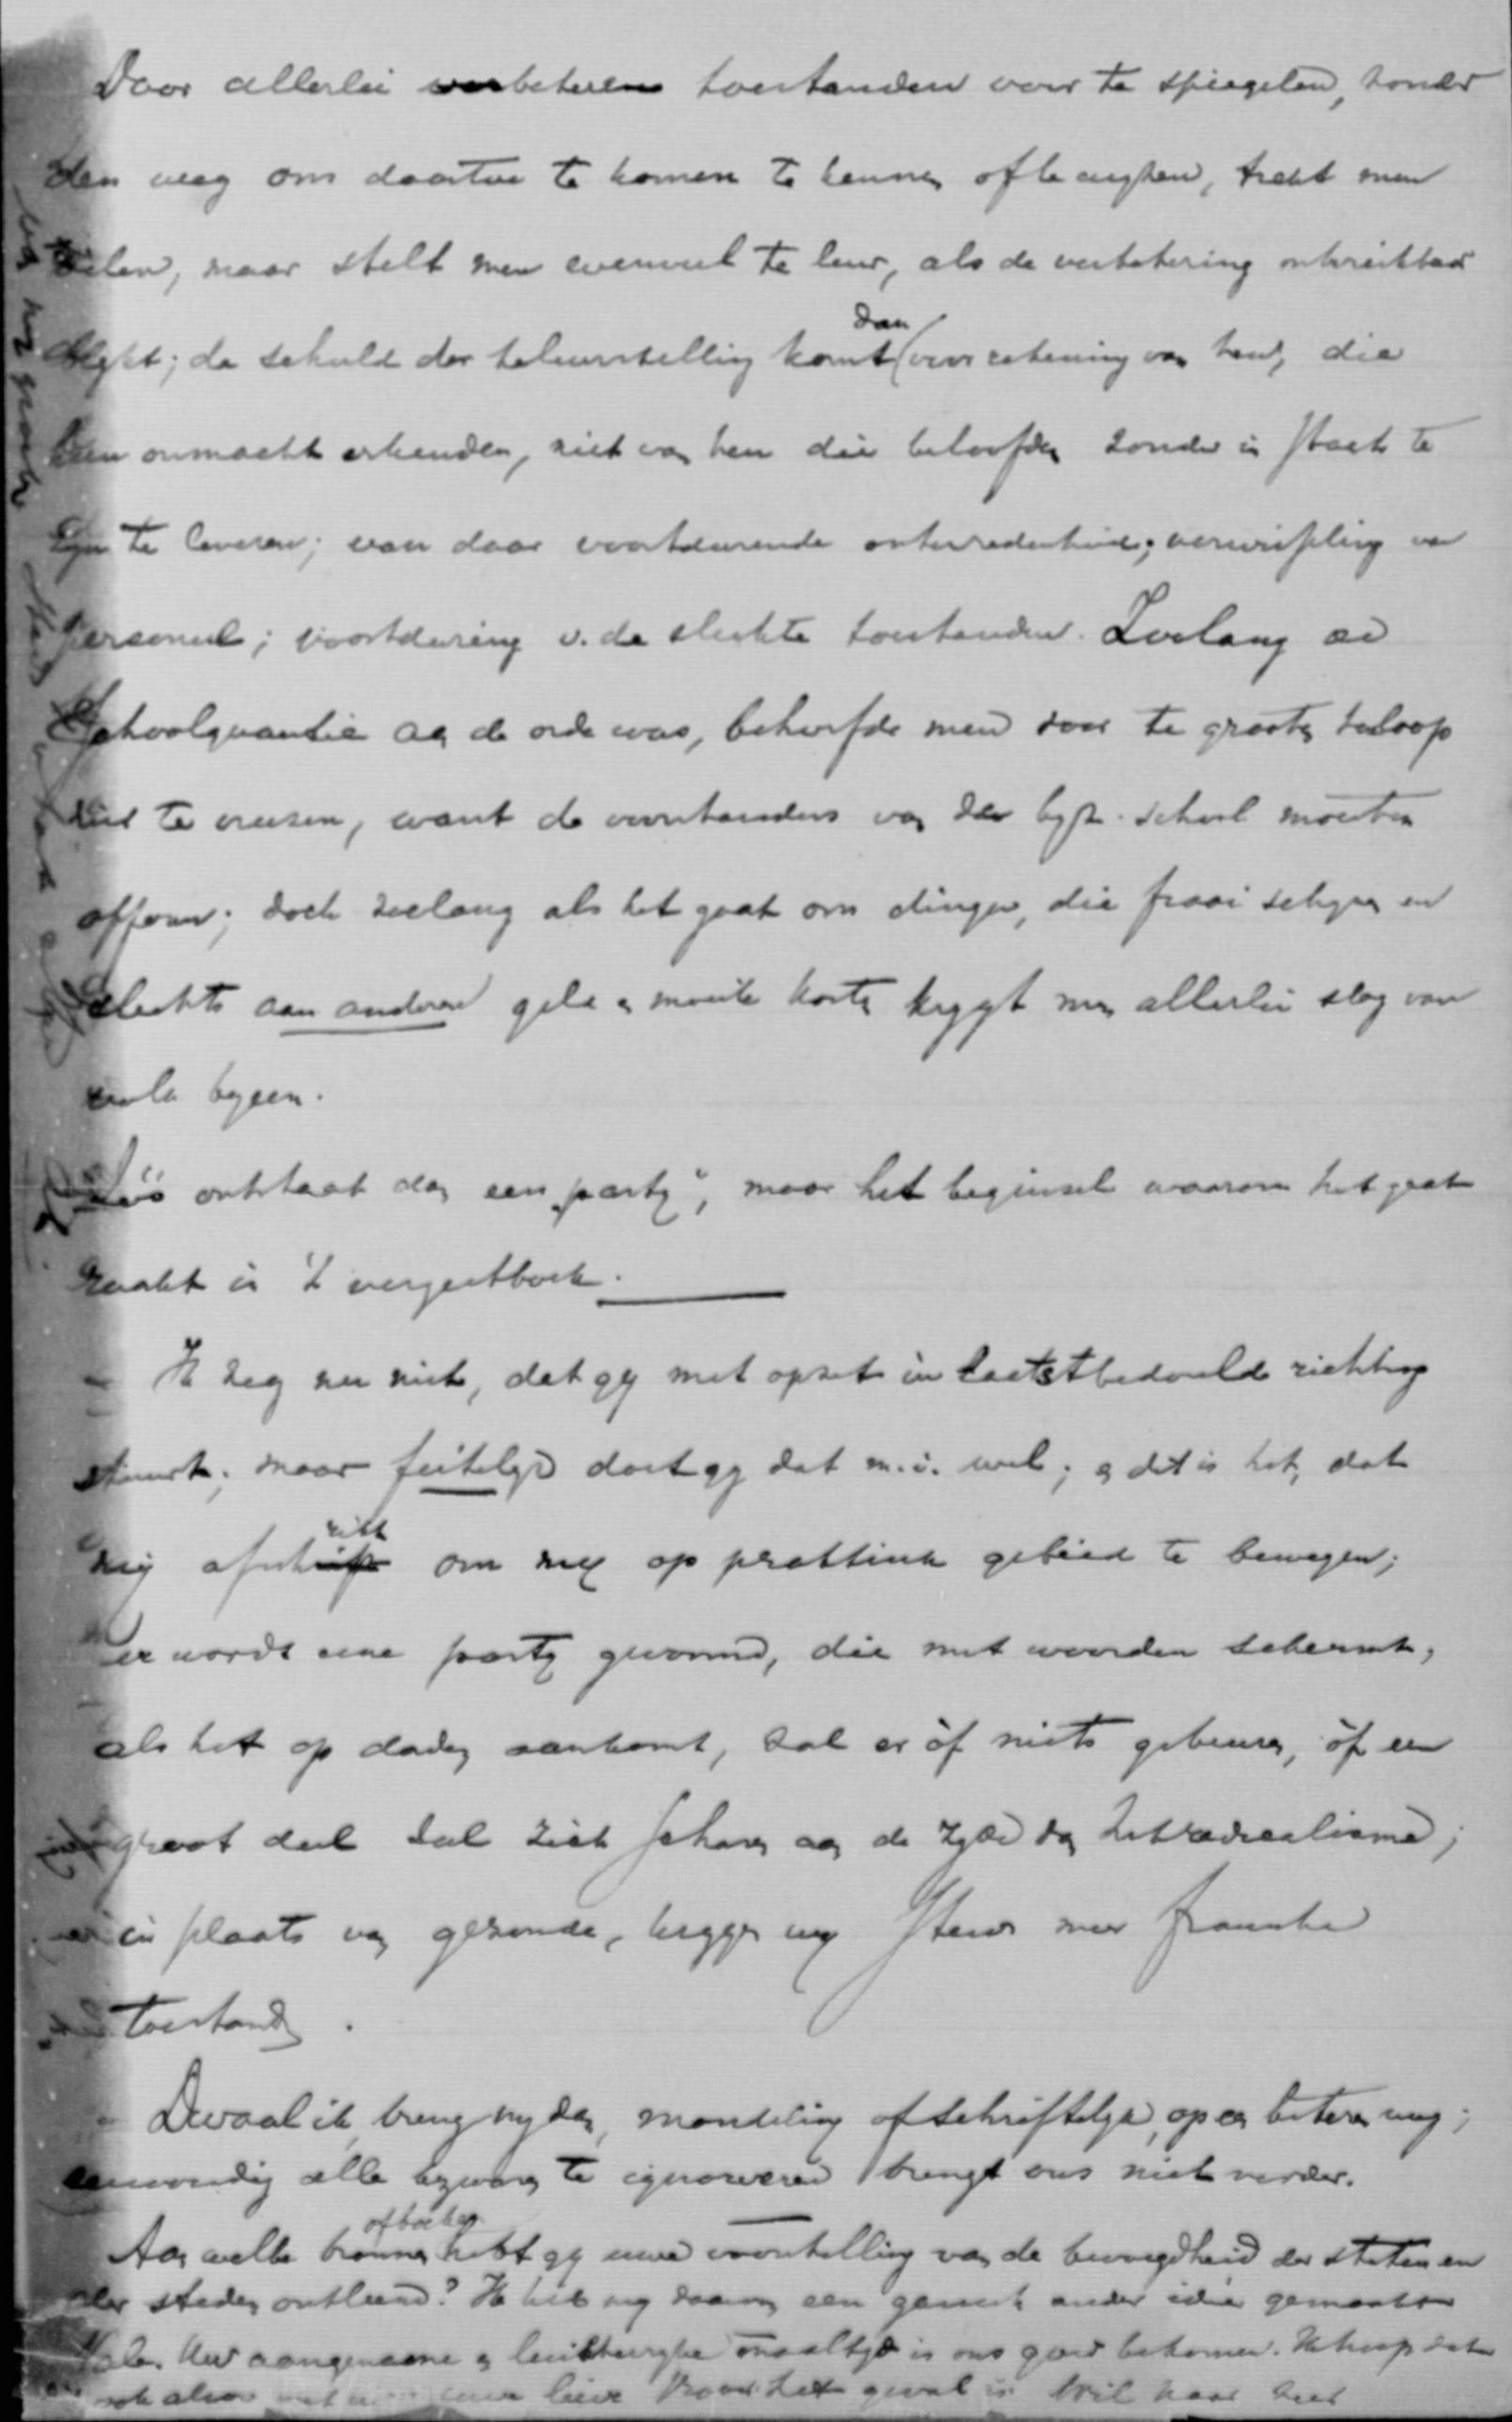 Door allerlei verbeterde toestanden voor te spiegelen, zonder
den weg om daartoe te komen te kennen of te wijzen, trekt men
velen, maar stelt men evenveel te leur, als de verbetering onbereikbaar
blijkt; de schuld der teleurstelling komt dan voor rekening van hen, die
hun onmacht erkenden, niet van hen die beloofden zonder in staat te
zijn te leveren; van daar voortdurende ontevredenheid; verwisseling van
personeel; voortduring v. de slechte toestanden. Zoolang de
Schoolquaestie aan de orde was, behoefde men voor te grooten toeloop
niet te vreezen, want de voorstanders van de bijz. school moesten
offeren; doch zoolang als het gaat om dingen, die fraai schijnen en
slechts aan anderen geld en moeite kosten krijgt men allerlei slag van
volk bijeen.
Zóó ontstaat dan een „partij”, maar het beginsel waarom het gaat
raakt in 't vergeetboek.
Ik zeg nu niet, dat gij met opzet in laatstbedoelde richting
stuurt; maar feitelijk doet gij dat m.i. wel; en dit is het, dat
mij afschrikt om mij op praktisch gebied te bewegen;
er wordt eene partij gevormd, die met woorden schermt;
als het op daden aankomt, zal er òf niets gebeuren, òf een
groot deel zal zich scharen aan de zijde van het radicalisme;
en in plaats van gezonde, krijgen wij steeds meer
toestanden.
Dwaal ik, breng mij dan, mondeling of schriftelijk, op een beteren weg;
eenvoudig alle bezwaren te ignoreeren brengt ons niet verder.
Aan welke bronnen of boeken hebt gij uwe voorstelling van de bevoegdheid der staten en
der steden ontleend? Ik heb mij daarvan een geheel ander idée gemaakt
Uw aangename en maaltijd is ons goed bekomen. Ik hoop dat
ook uwe lieve Vrouw het geval is. Wil haar zeer